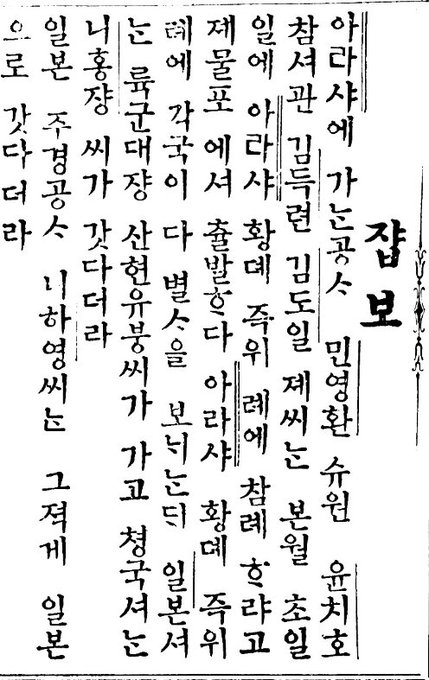 쟙보
아라샤에 가ᄂᆞᆫ공ᄉᆞ 민영환 슈원 윤치호
참셔관 김득련 김도일 졔씨ᄂᆞᆫ 본월 초일
일에 아라샤 황뎨 즉위 례에 참례 ᄒᆞ랴고
졔물포 에셔 츌발ᄒᆞᆫ다 아라샤 황뎨 즉위
례에 각국이 다 별ᄉᆞ을 보ᄂᆡᄂᆞᆫᄃᆡ 일본셔
ᄂᆞᆫ 륙군대쟝 산현유붕씨가 가고 쳥국셔ᄂᆞᆫ
니홍쟝 씨가 갓다더라
일본 주경공ᄉᆞ 니하영씨ᄂᆞᆫ 그젹게 일본
으로 갓다더라